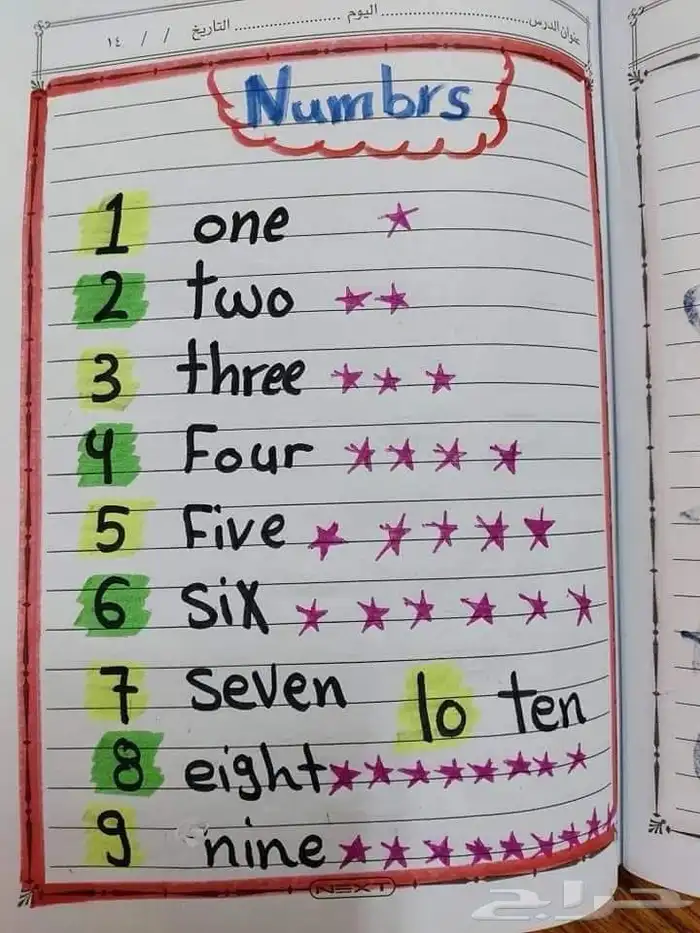 عنوان الدرس.................... اليوم .................... التاريخ / / ١٤
Numbrs
1 one
2 two
3 three
4 Four
5 Five
6 six
7 seven
lo ten
8 eight
9 nine
NEXT
حراج